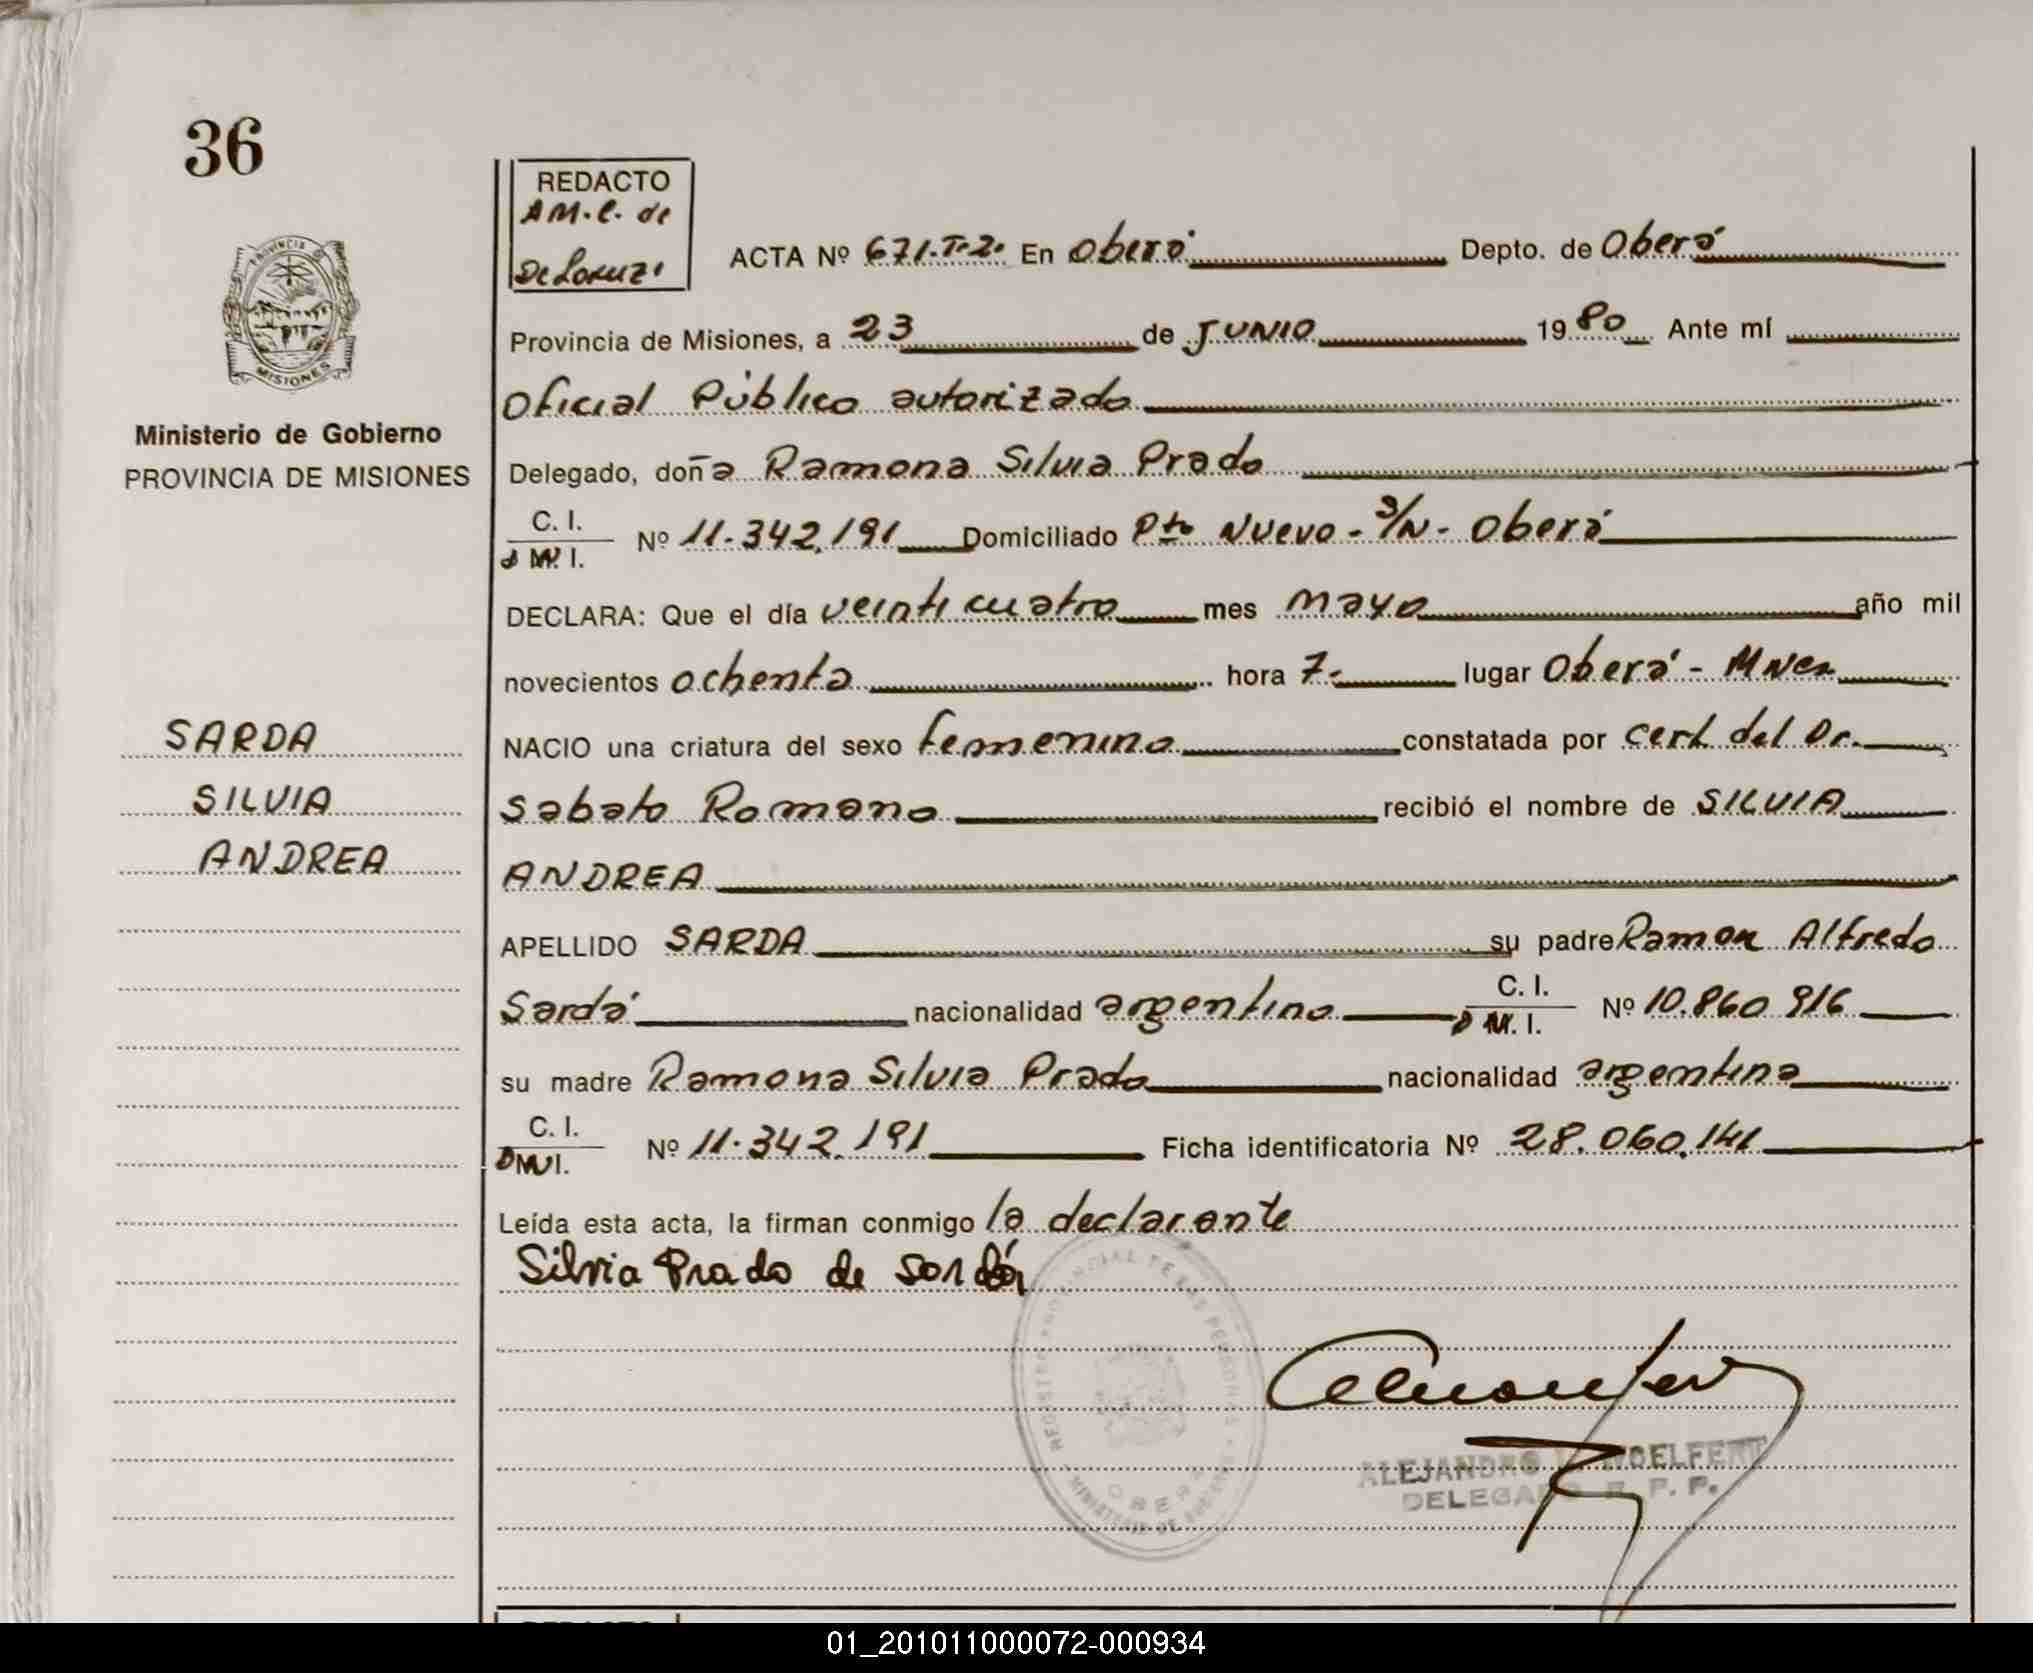 36
REDACTO
AM.C. de
De Lorenzi
ACTA Nº 671.T.2. En Oberá Depto. de Oberá
Provincia de Misiones, a 23 de JUNIO 1980 Ante mí
Oficial Público autorizado
PROVINCIA
MISIONES
Ministerio de Gobierno
PROVINCIA DE MISIONES
Delegado, doña Ramona Silvia Prado
C. I.
D M. I. Nº 11.342.191 Domiciliado Pto Nuevo - S/N - Oberá
DECLARA: Que el día veinticuatro mes mayo año mil
novecientos ochenta hora 7- lugar Oberá - Mnes
SARDA
SILVIA
ANDREA
NACIO una criatura del sexo femenino constatada por cert. del Dr.
Sabato Romano recibió el nombre de SILVIA
ANDREA
APELLIDO SARDA su padre Ramon Alfredo
Sardá nacionalidad argentina C. I.
D M. I. Nº 10.860.916
su madre Ramona Silvia Prado nacionalidad argentina
C. I.
D M I. Nº 11.342.191 Ficha identificatoria Nº 28.060.141
Leída esta acta, la firman conmigo la declarante
Silvia Prado de Sardá
REGISTRO PROVINCIAL DE LAS PERSONAS
MINISTERIO DE GOBIERNO
OBERA
ALEJANDRO WOELFERT
DELEGADO R. P. P.
REDACTO
01_201011000072-000934